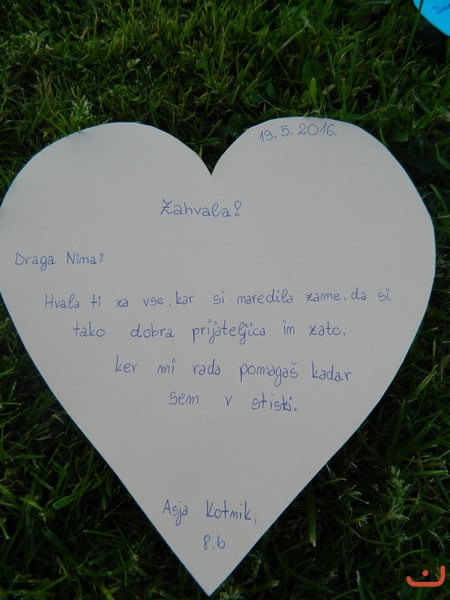 19.5.2016.
Zahvala!
Draga Nina:
Hvala ti za vse, kar si naredila zame, da si
tako dobra prijateljica in zato,
ker mi rada pomagaš kadar
sem v stiski.
Asja Kotnik,
8.b